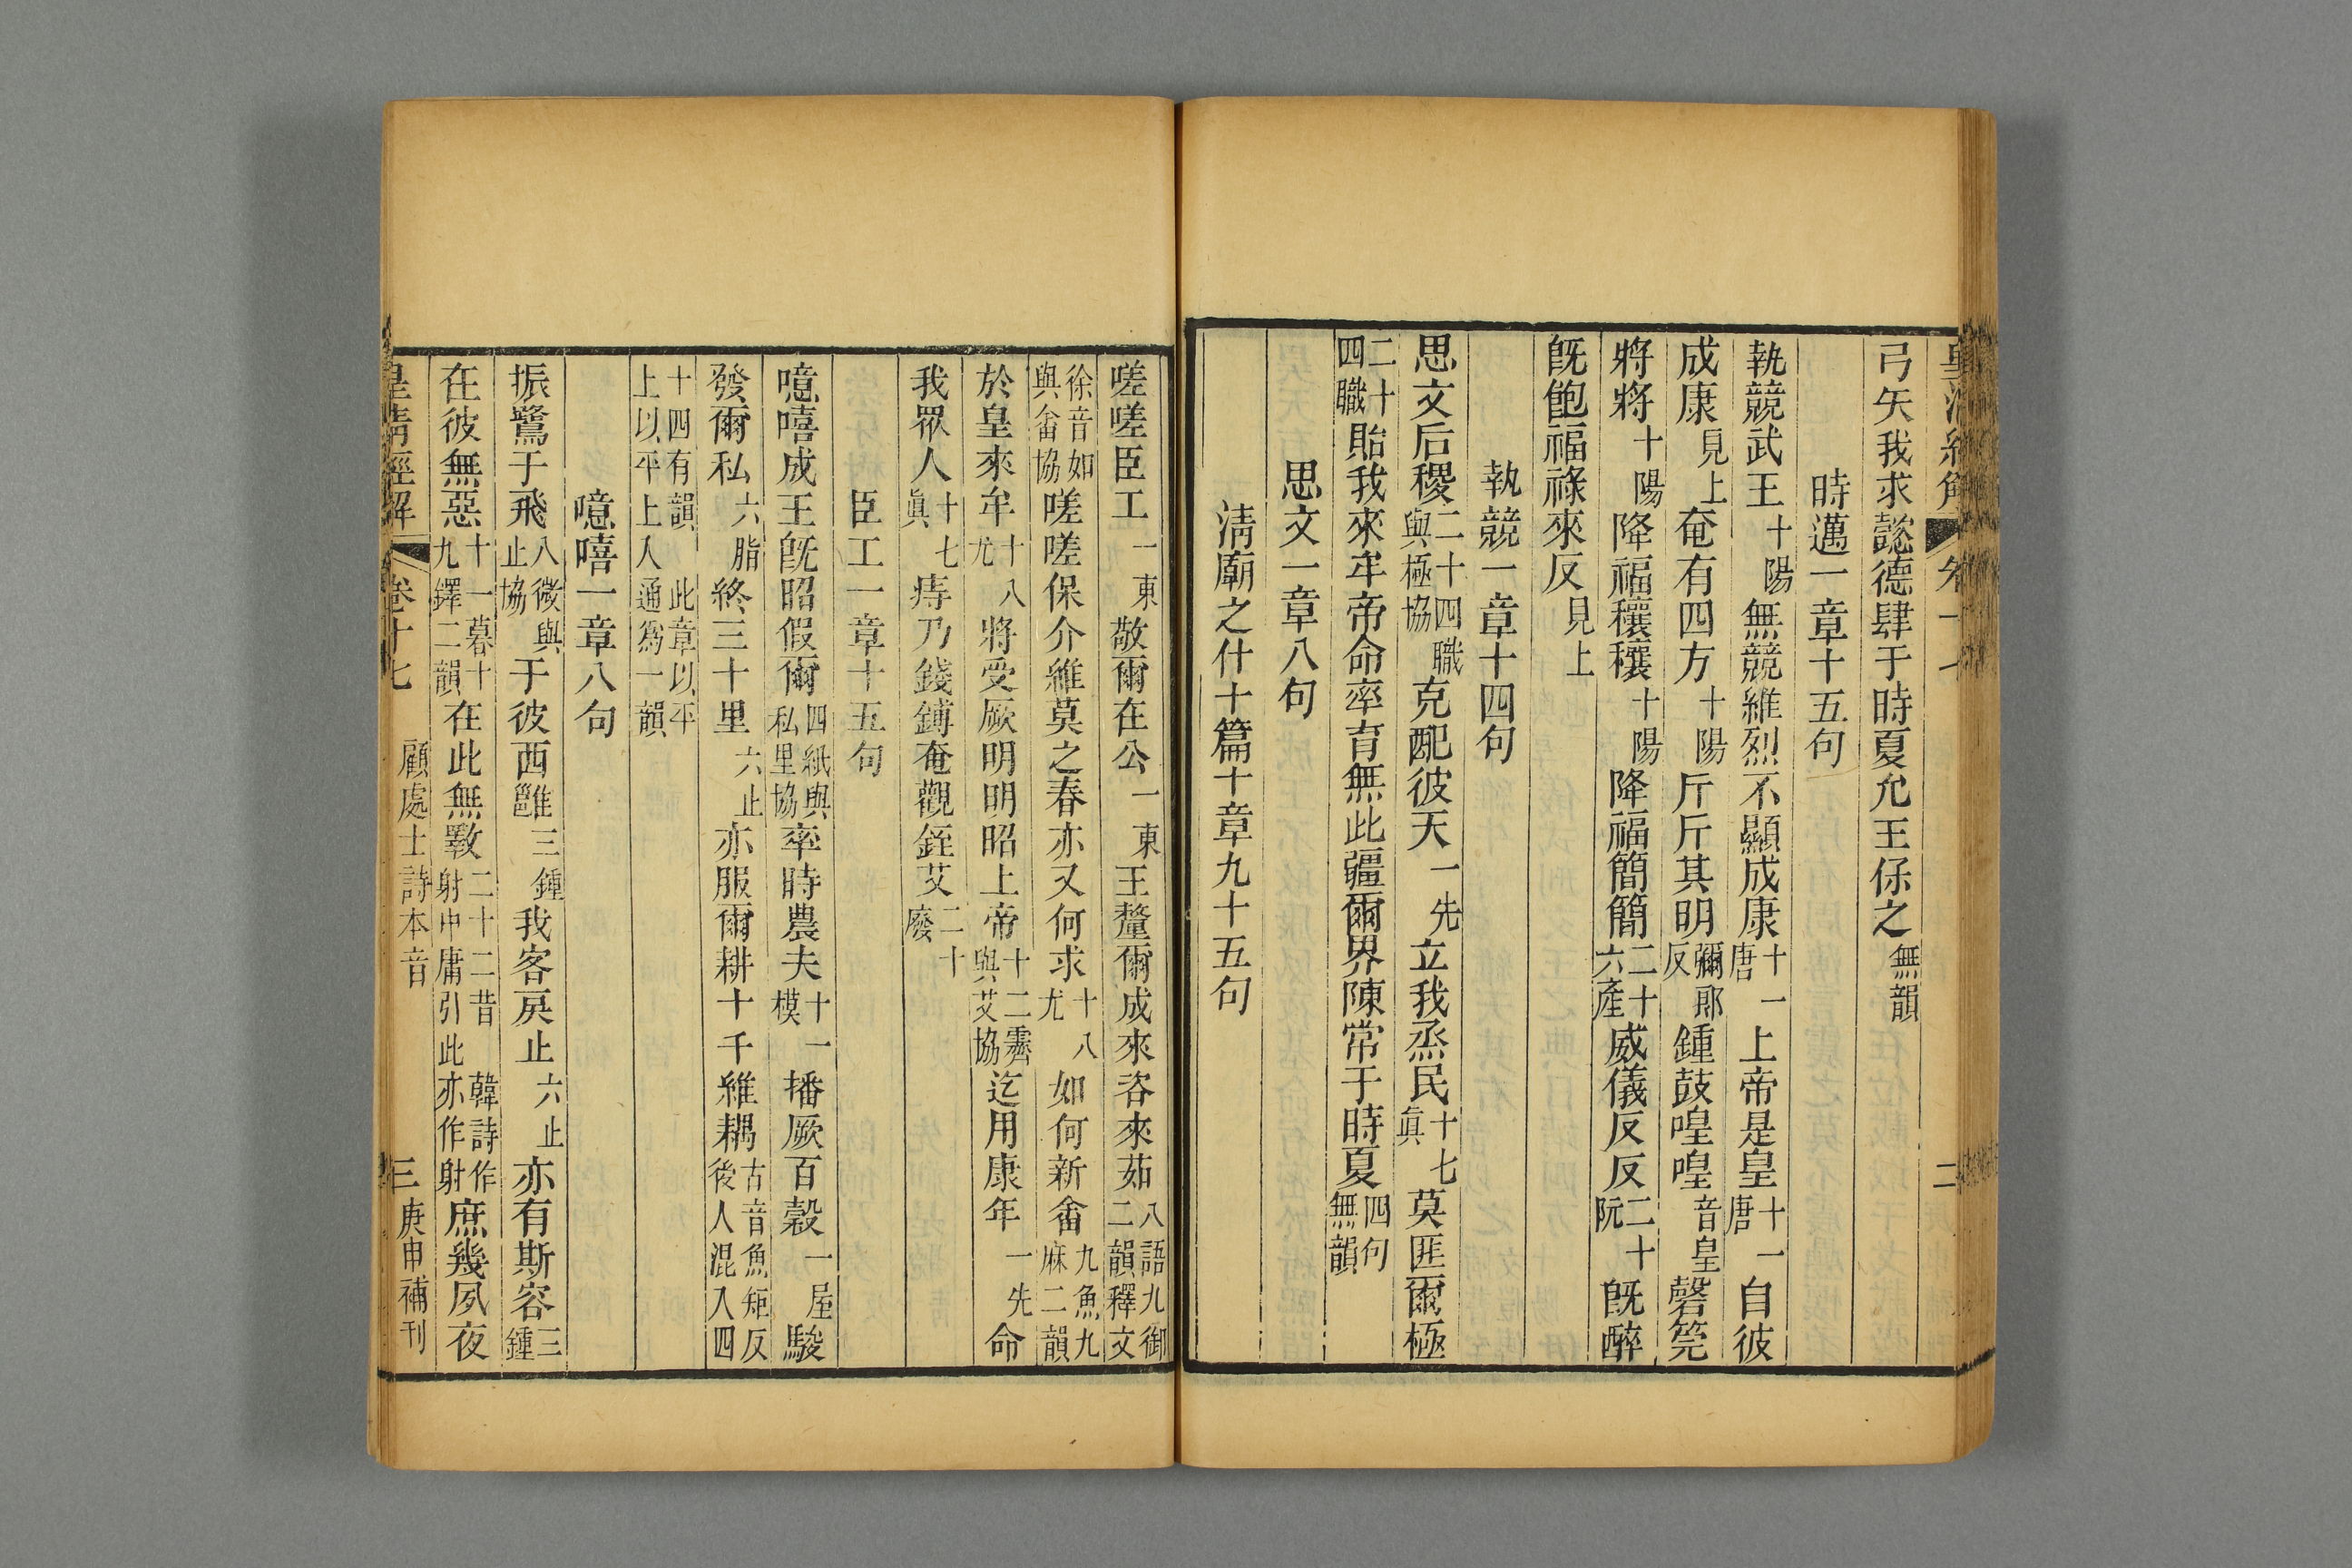 弓矢我求懿德肆于時夏允王保之無韻
時邁一章十五句
執競武王十陽無競維烈不顯成康十一唐上帝是皇十一唐自彼
成康見上奄有四方十陽斤斤其明彌郎反鍾鼓喤喤音皇磬筦
將將十陽降福穰穰十陽降福簡簡二十六產威儀反反二十阮旣醉
旣飽福祿來反見上
執競一章十四句
思文后稷二十四職與極協克配彼天一先立我烝民十七眞莫匪爾極
二十四職貽我來牟帝命率育無此疆爾界陳常于時夏四句無韻
思文一章八句
淸廟之什十篇十章九十五句
嗟嗟臣工一東敬爾在公一東王釐爾成來咨來茹八語九御二韻釋文
徐音如與畬協嗟嗟保介維莫之春亦又何求十八尤如何新畬九魚九麻二韻
於皇來牟十八尤將受厥明明昭上帝十二霽與艾協迄用康年一先命
我眾人十七眞庤乃錢鎛奄觀銍艾二十廢
臣工一章十五句
噫嘻成王旣昭假爾四紙與私里協率時農夫十一模播厥百穀一屋駿
發爾私六脂終三十里六止亦服爾耕十千維耦古音魚矩反後人混入四
十四有韻此章以平上以平上人通爲一韻
噫嘻一章八句
振鷺于飛八微與止協于彼西雝三鍾我客戾止六止亦有斯容三鍾
在彼無惡十一暮十九鐸二韻在此無斁二十二昔韓詩作射中庸引此亦作射庶幾夙夜
皇淸經解 卷十七 顧處士詩本音 三 庚申補刊